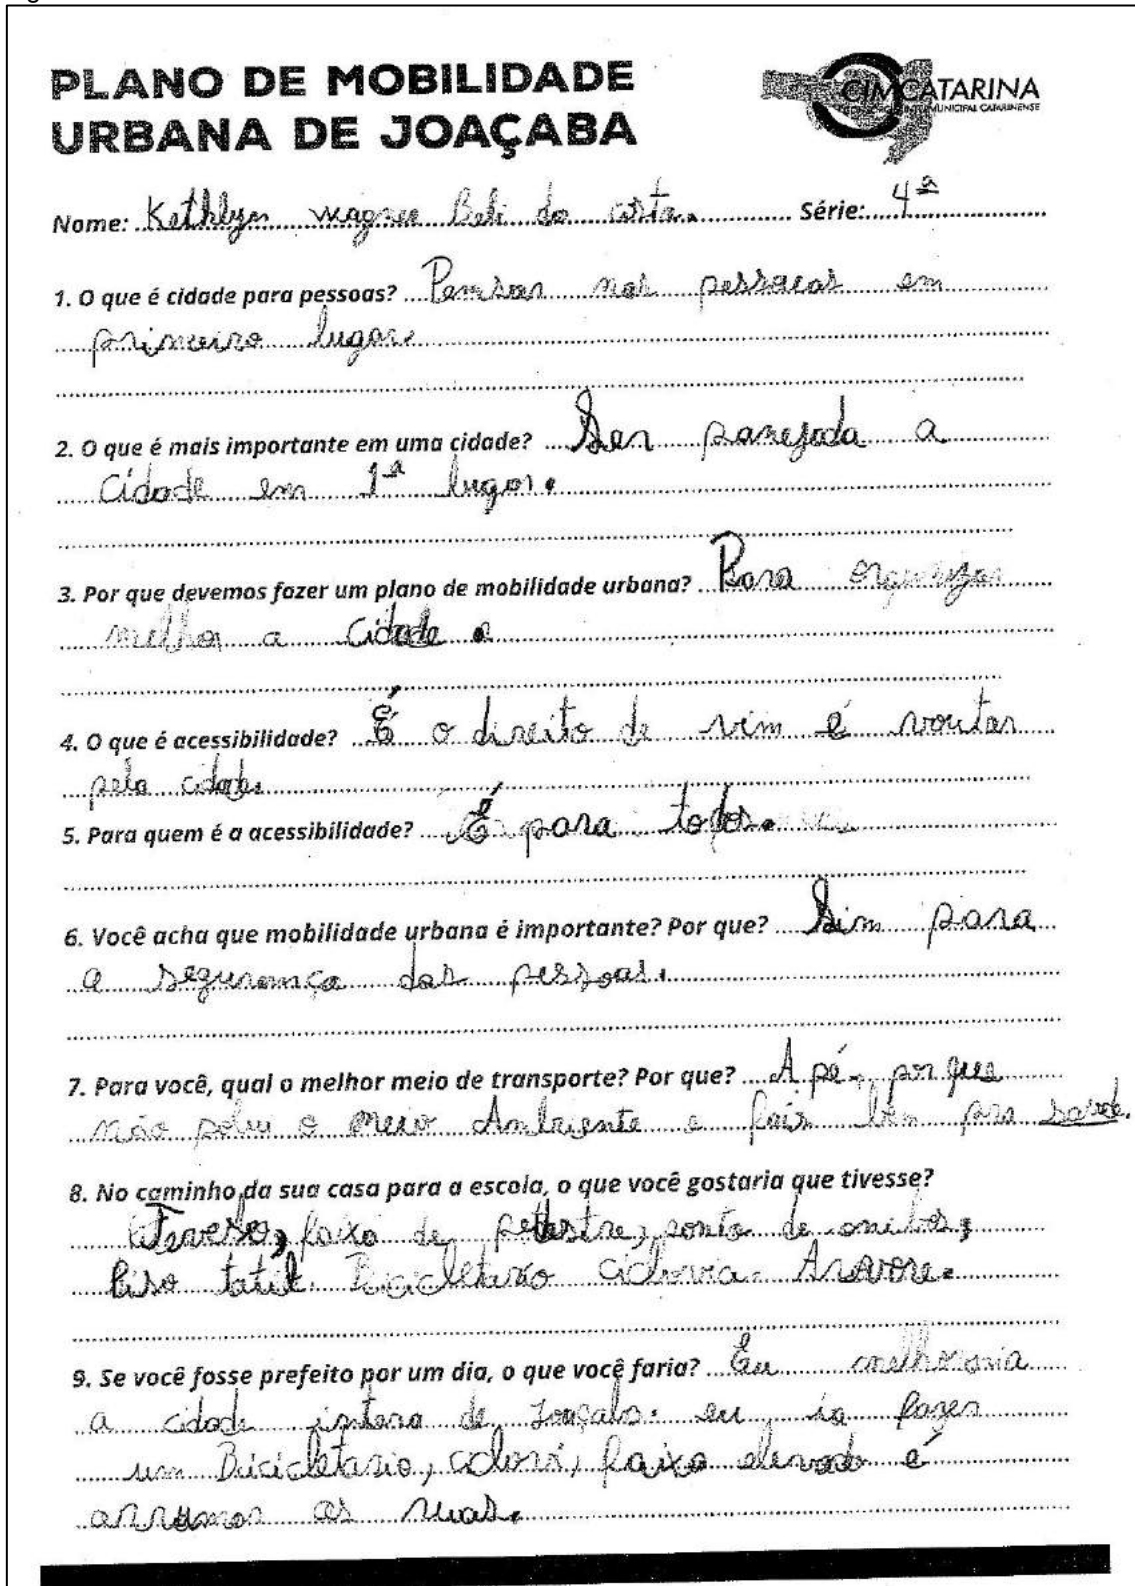 PLANO DE MOBILIDADE
URBANA DE JOAÇABA
CIMCATARINA
Nome: Kethlyn Wagner Beli da costa. Série: 4ª
1. O que é cidade para pessoas? Pensar nas pessoas em
primeiro lugar.
2. O que é mais importante em uma cidade? Ser panejada a
cidade em 1ª lugar.
3. Por que devemos fazer um plano de mobilidade urbana? Para organizar
melhor a cidade.
4. O que é acessibilidade? É o direito de vim é voutar
pela cidade.
5. Para quem é a acessibilidade? É para todos.
6. Você acha que mobilidade urbana é importante? Por que? Sim para
a segurança das pessoas.
7. Para você, qual o melhor meio de transporte? Por que? A pé, por que
não polui o meio Ambiente e faiz bem pra saúde.
8. No caminho da sua casa para a escola, o que você gostaria que tivesse?
faixa de pedestre, ponto de onibos,
Piso tatil. Bicicletario ciclovia. Aravore.
9. Se você fosse prefeito por um dia, o que você faria? Eu melhoraria
a cidade intera de Joaçaba. eu ia fazer
um Bicicletario, faixa elevada é
arrumar as ruas.